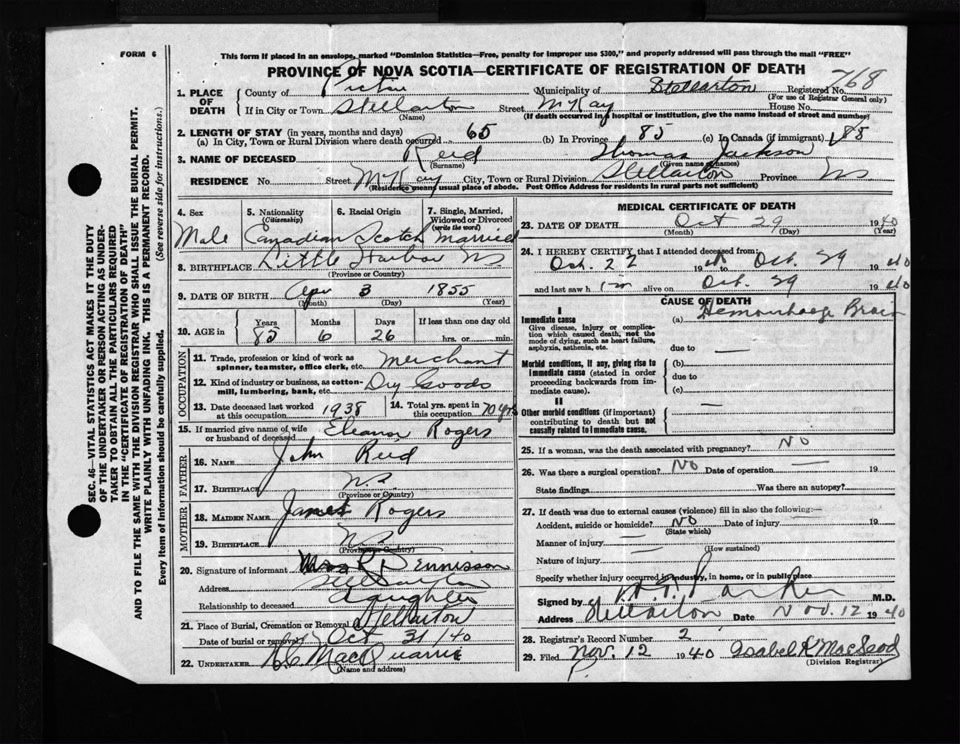 FORM 6
This form if placed in an envelope, marked "Dominion Statistics—Free, penalty for improper use $300," and properly addressed will pass through the mail "FREE"
PROVINCE OF NOVA SCOTIA—CERTIFICATE OF REGISTRATION OF DEATH
768
1. PLACE OF DEATH
County of Pictou Municipality of Stellarton Registered No.
(For use of Registrar General only)
If in City or Town Stellarton Street McKay House No.
(Name) (If death occurred in a hospital or institution, give the name instead of street and number)
2. LENGTH OF STAY (in years, months and days)
(a) In City, Town or Rural Division where death occurred 65 (b) In Province 85 (c) In Canada (if immigrant) 85
3. NAME OF DECEASED Reid Thomas Jackson
(Surname) (Given name or names)
RESIDENCE No. Street McKay City, Town or Rural Division Stellarton Province NS
(Residence means usual place of abode. Post Office Address for residents in rural parts not sufficient)
SEC. 46—VITAL STATISTICS ACT MAKES IT THE DUTY
OF THE UNDERTAKER OR PERSON ACTING AS UNDER-
TAKER TO OBTAIN ALL THE PARTICULARS REQUIRED
IN THE "CERTIFICATE OF REGISTRATION OF DEATH"
AND TO FILE THE SAME WITH THE DIVISION REGISTRAR WHO SHALL ISSUE THE BURIAL PERMIT.
WRITE PLAINLY WITH UNFADING INK. THIS IS A PERMANENT RECORD.
Every item of information should be carefully supplied. (See reverse side for instructions.)
4. Sex 5. Nationality (Citizenship) 6. Racial Origin 7. Single, Married, Widowed or Divorced (write the word)
Male Canadian Scotch Married
8. BIRTHPLACE Little Harbor NS
(Province or Country)
9. DATE OF BIRTH Apr 3 1855
(Month) (Day) (Year)
10. AGE in Years Months Days If less than one day old
85 6 26 hrs. or min.
OCCUPATION
11. Trade, profession or kind of work as spinner, teamster, office clerk, etc. Merchant
12. Kind of industry or business, as cotton-mill, lumbering, bank, etc. Dry Goods
13. Date deceased last worked at this occupation 1938
14. Total yrs. spent in this occupation 70 yrs
15. If married give name of wife or husband of deceased Eleanor Rogers
FATHER
16. NAME John Reid
17. BIRTHPLACE N.S.
(Province or Country)
MOTHER
18. MAIDEN NAME Rogers
19. BIRTHPLACE NS
(Province or Country)
20. Signature of informant Mrs R Dennisson
Address Stellarton
Relationship to deceased Daughter
21. Place of Burial, Cremation or Removal Stellarton
Date of burial or removal Oct 31/40
22. UNDERTAKER MacQuarrie
(Name and address)
MEDICAL CERTIFICATE OF DEATH
23. DATE OF DEATH Oct 29 1940
(Month) (Day) (Year)
24. I HEREBY CERTIFY that I attended deceased from:
Oct. 22 19 to Oct. 29 1940
and last saw h im alive on Oct. 29 1940
CAUSE OF DEATH
I
Immediate cause (a) Hemorrhage Brain
Give disease, injury or complication which caused death, not the mode of dying, such as heart failure, asphyxia, asthenia, etc.
due to —
Morbid conditions, if any, giving rise to immediate cause (stated in order proceeding backwards from immediate cause).
(b)
due to
(c)
II
Other morbid conditions (if important) contributing to death but not causally related to immediate cause. —
25. If a woman, was the death associated with pregnancy? NO
26. Was there a surgical operation? NO Date of operation — 19
State findings Was there an autopsy?
27. If death was due to external causes (violence) fill in also the following:—
Accident, suicide or homicide? NO Date of injury — 19
(State which)
Manner of injury —
(How sustained)
Nature of injury —
Specify whether injury occurred in industry, in home, or in public place
Signed by Parker M.D.
Address Stellarton Date Nov. 12 1940
28. Registrar's Record Number 2
29. Filed Nov. 12 1940 Isabel K MacLeod
(Division Registrar)